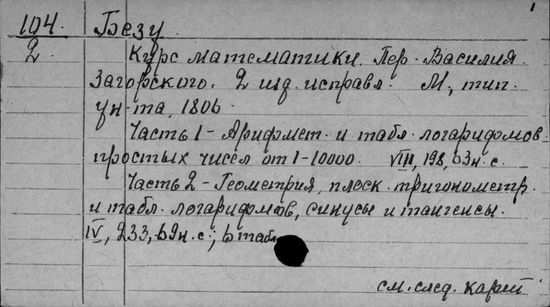 1
104. Безу
2. Курс математики. Пер. Василия
Загорского. 2 изд. исправл. М., тип.
ун-та, 1806.
Часть 1 - Арифмет. и табл. логарифмов
простых чисел от 1-10000. VIII, 198, 63н. с.
Часть 2 - Геометрия, плоск. тригонометр.
и табл. логарифмов, синусы и тангенсы.
IV, 233, 69н. с.; 6 табл.
см. след. карт